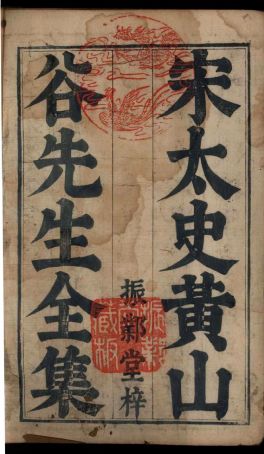 宋太史黃山
谷先生全集
振鄴堂梓
振鄴堂藏板